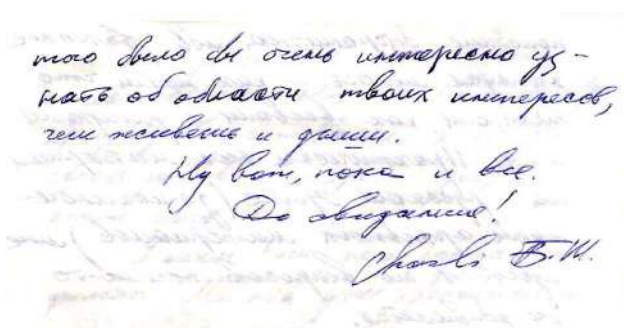 того было бы очень интересно уз-
нать об области твоих интересов,
чем живешь и дыши.
Ну вот, пока и все.
До свидания!
Б.Ш.